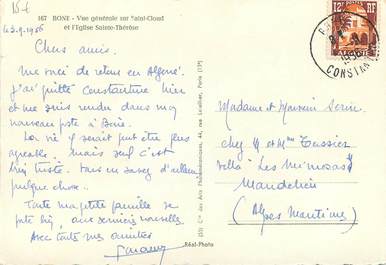 15-E
167 BONE - Vue générale sur Saint-Cloud
et l'Eglise Sainte-Thérèse
le 3.9.1956
Chers amis.
Me voici de retour en Algérie.
J'ai quitté Constantine hier
et me suis rendu dans mon
nouveau poste à Bône.
La vie y serait peut être plus
agréable. mais seul c'est
bien triste. Vous en savez d'ailleurs
quelque chose.
Toute ma petite famille se
porte bien, aux dernières nouvelles.
Avec toutes mes amitiés
Réal-Photo
Cie des Arts Photomécaniques, 44, rue Letellier, Paris (15e)
12F RF
1956
CONSTANTINE
Madame et Monsieur
chez M et Mme Tessier
villa "Les Mimosas"
Mandelieu
(Alpes Maritimes)